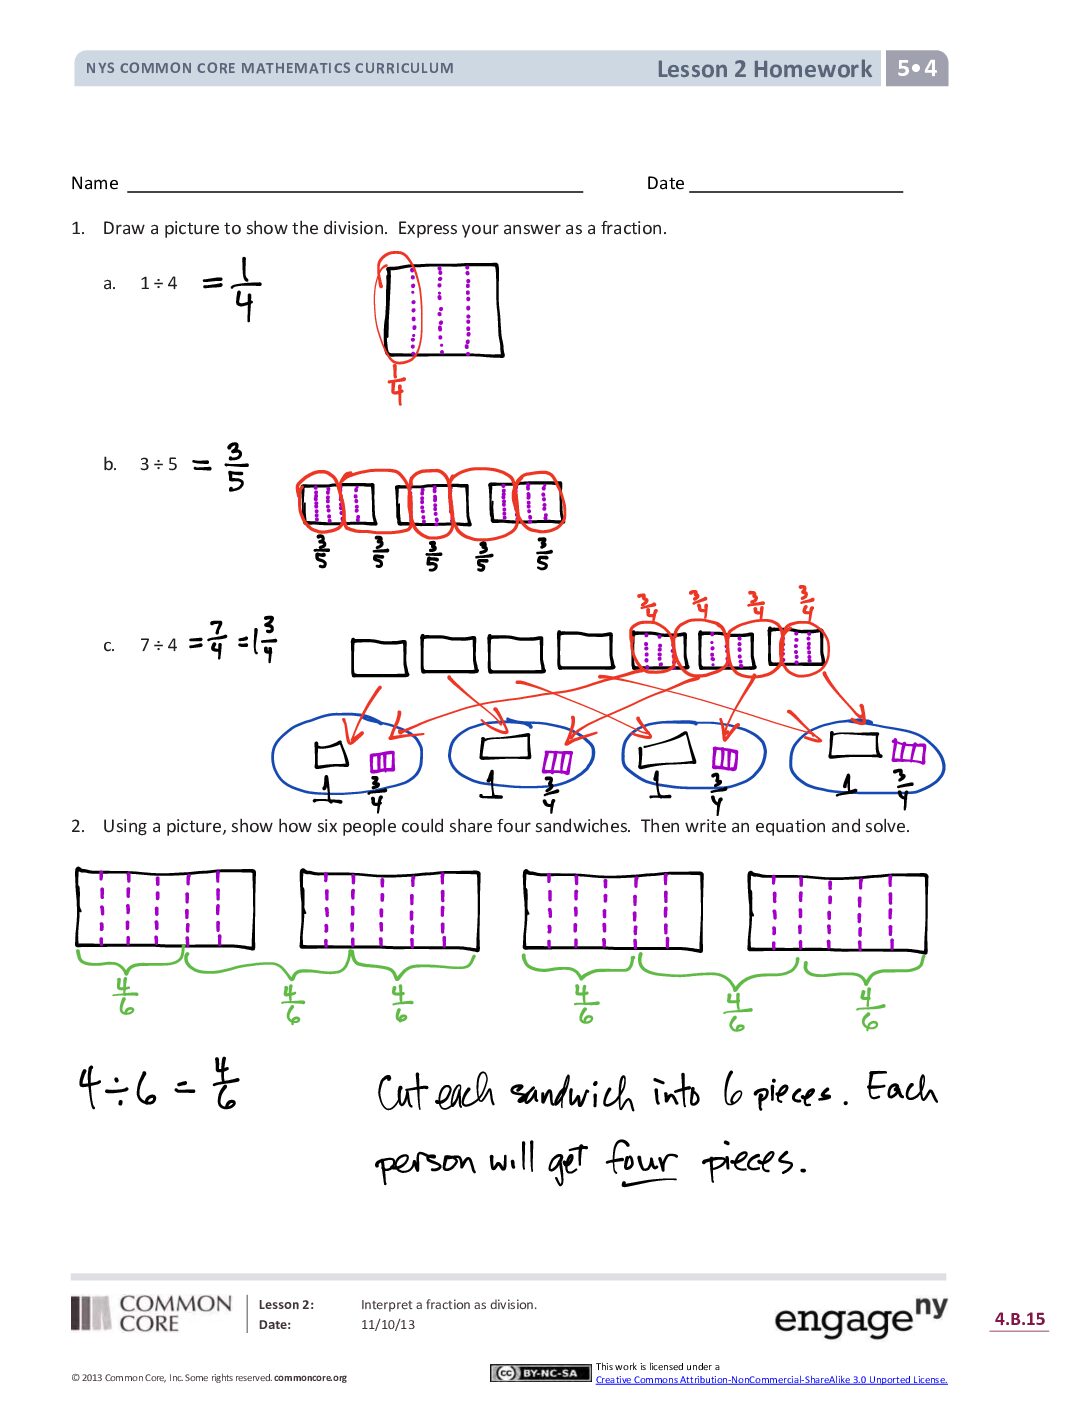 NYS COMMON CORE MATHEMATICS CURRICULUM Lesson 2 Homework 5•4
Name Date
1. Draw a picture to show the division. Express your answer as a fraction.
a. 1 ÷ 4 = 1/4
1/4
b. 3 ÷ 5 = 3/5
3/5 3/5 3/5 3/5 3/5
3/4 3/4 3/4 3/4
c. 7 ÷ 4 = 7/4 = 1 3/4
1 3/4 1 3/4 1 3/4 1 3/4
2. Using a picture, show how six people could share four sandwiches. Then write an equation and solve.
4/6 4/6 4/6 4/6 4/6 4/6
4 ÷ 6 = 4/6
Cut each sandwich into 6 pieces. Each
person will get four pieces.
COMMON
CORE
Lesson 2: Interpret a fraction as division.
Date: 11/10/13
engageny
4.B.15
© 2013 Common Core, Inc. Some rights reserved. commoncore.org
cc BY-NC-SA
This work is licensed under a
Creative Commons Attribution-NonCommercial-ShareAlike 3.0 Unported License.